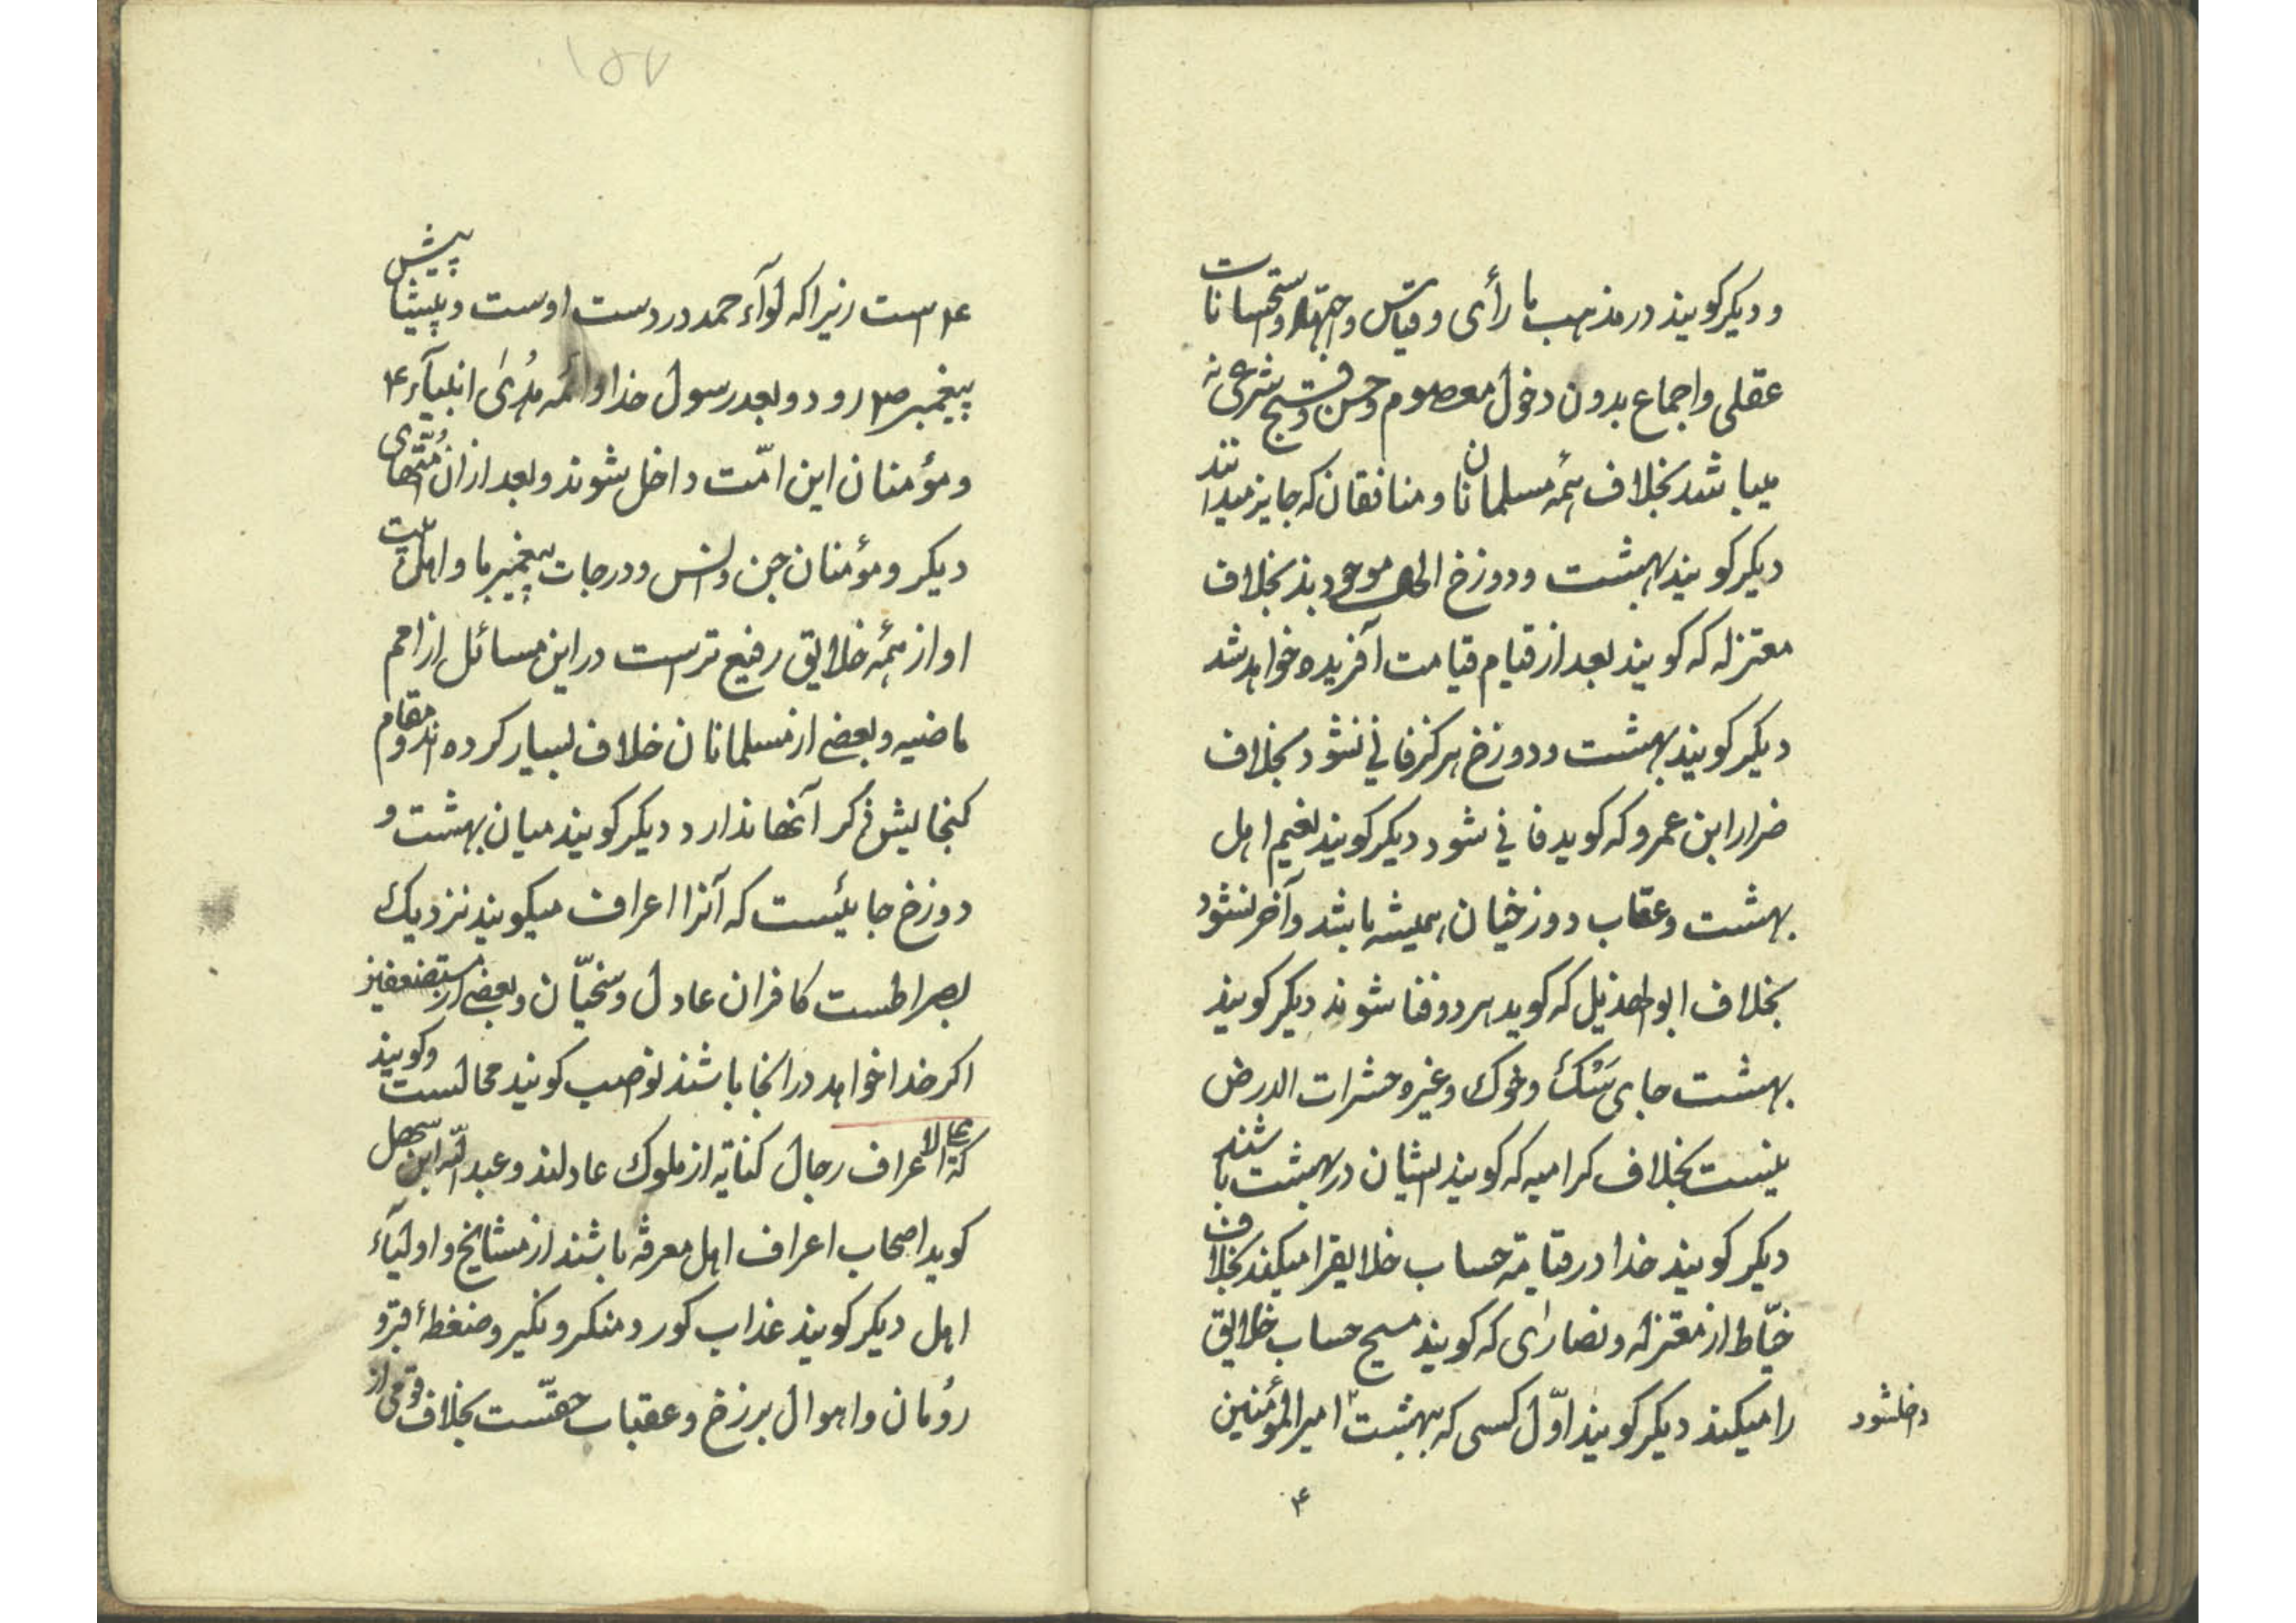 و دیگر گویند در مذهب ما رأی و قیاس و اجتهاد و استحسانات
عقلی و اجماع بدون دخول معصوم و حسن و قبح شرعی نه
میباشد بخلاف همه مسلمانان و منافقان که جایز میدانند
دیگر گویند بهشت و دوزخ الحال موجودند بخلاف
معتزله که گویند بعد از قیام قیامت آفریده خواهد شد
دیگر گویند بهشت و دوزخ هرگز فانی نشود بخلاف
ضرار ابن عمرو که گوید فانی شود دیگر گویند نعیم اهل
بهشت و عقاب دوزخیان همیشه باشد و آخر نشود
بخلاف ابوالهذیل که گوید هر دو فنا شوند دیگر گویند
بهشت جای سگ و خوک و غیره حشرات الارض
نیست بخلاف کرامیه که گویند ایشان در بهشت باشند
دیگر گویند خدا در قیامة حساب خلایقرا میکند بخلاف
خیّاط از معتزله و نصارای که گویند مسیح حساب خلایق
را میکند دیگر گویند اوّل کسی که ببهشت امیرالمؤمنین
داخلشود
ع
ع است زیرا که لوآء حمد در دست اوست و پیشاپیش
پیغمبر ص رود و بعد رسول خدا و ائمه هُدیٰ انبیآء ع
و مؤمنان این امّت داخل شوند و بعد از ان امّتهای
دیگر و مؤمنان جن و انس و درجات پیغمبر ما و اهلبیت
او از همه خلایق رفیع تر است در این مسائل از امم
ماضیه و بعضی از مسلمانان خلاف بسیار کرده اند و مقام
گنجایش ذکر آنها ندارد دیگر گویند میان بهشت و
دوزخ جایئست که آنرا اعراف میگویند نزدیک
بصراطست کافران عادل و سخیّان و بعضی از مستضعفین
اگر خدا خواهد در انجا باشند نواصب گویند محالست و گویند
که علی الاعراف رجال کنایة از ملوک عادلند و عبد الله ابن سهل
گوید اصحاب اعراف اهل معرفة باشند از مشایخ و اولیآء
اهل دیگر گویند عذاب گور و منکر و نکیر و ضغطهٔ قبر و
رومان و اهوال برزخ و عقبات حقّست بخلاف قومی از